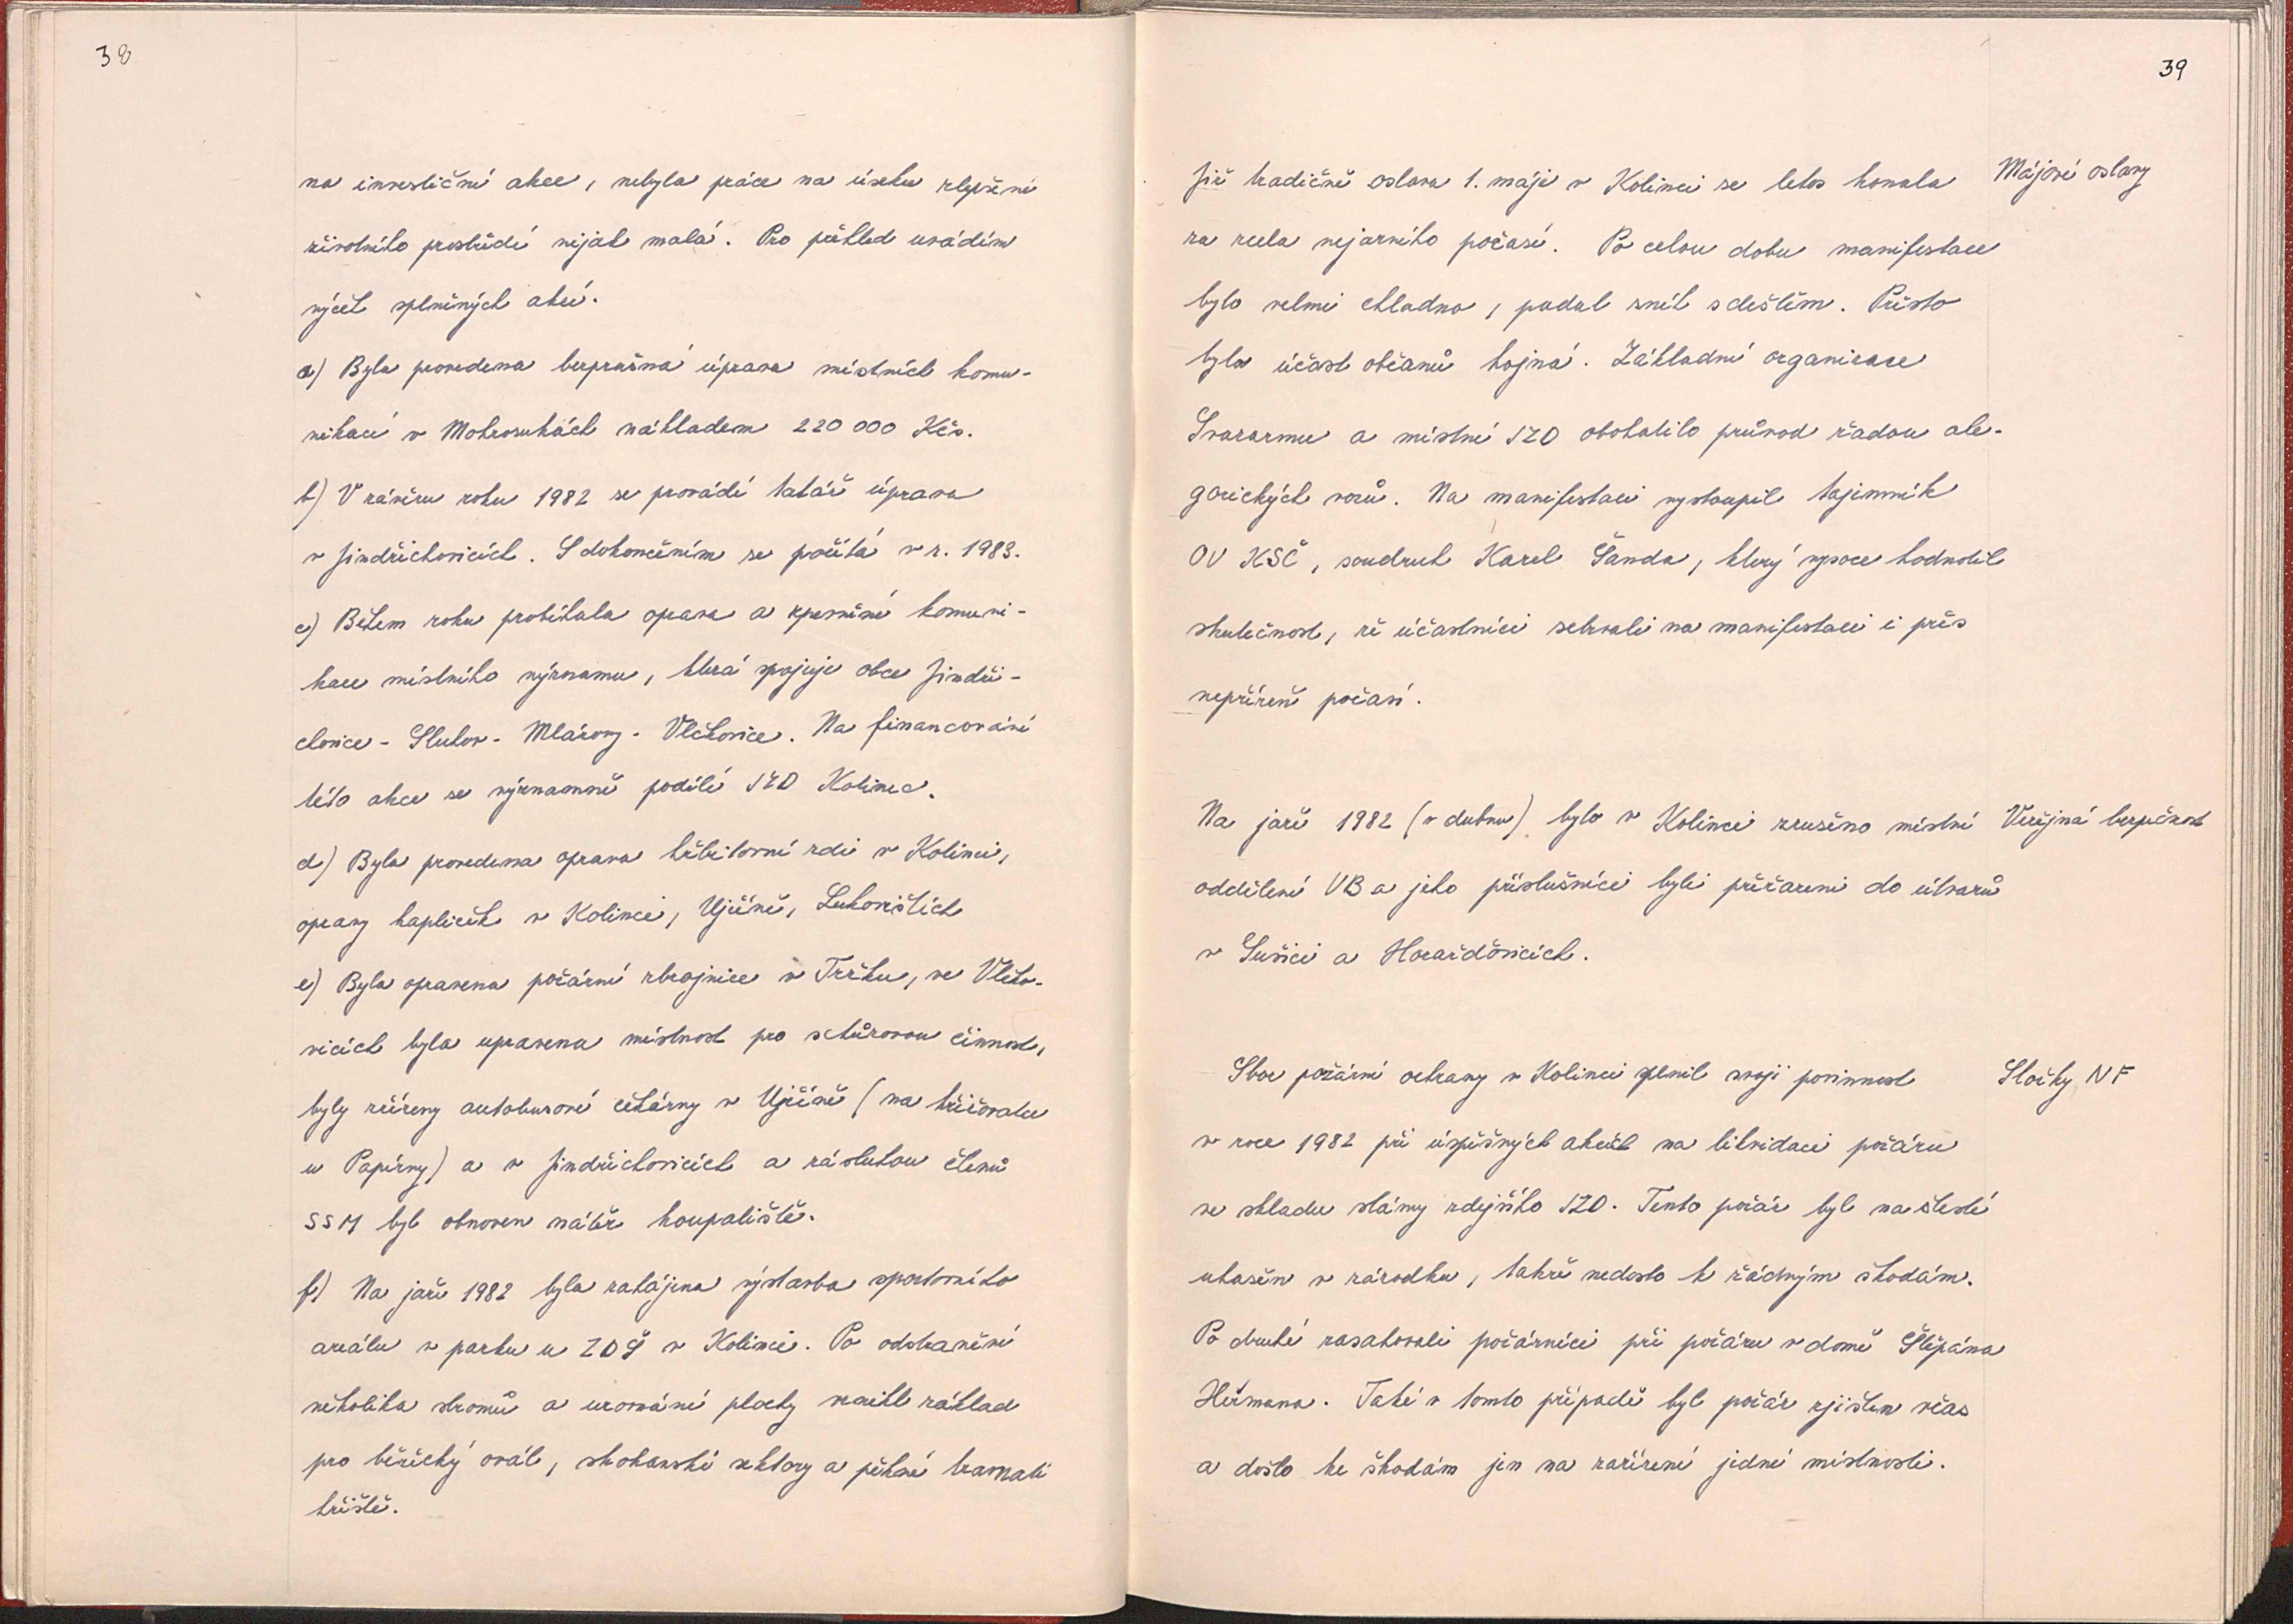 38
na investiční akce, nebyla práce na úseku zlepšení
životního prostředí nijak malá. Pro přehled uvádím
výčet splněných akcí.
a) Byla provedena bezprašná úprava místních komu-
nikací v Mokrosukách nákladem 220 000 Kčs.
b) V závěru roku 1982 se provádí tatáž úprava
v Jindřichovicích. S dokončením se počítá v r. 1983.
c) Během roku probíhala oprava a zpevnění komuni-
kace místního významu, která spojuje obce Jindři-
chovice - Sluhov - Mlázovy - Vlčkovice. Na financování
této akce se významně podílí JZD Kolinec.
d) Byla provedena oprava hřbitovní zdi v Kolinci,
opravy kapliček v Kolinci, Ujčíně, Lukovištích
e) Byla opravena požární zbrojnice v Tržku, ve Vlčko-
vicích byla upravena místnost pro schůzovou činnost,
byly zřízeny autobusové čekárny v Ujčíně (na křižovatce
u Papírny) a v Jindřichovicích a zásluhou členů
SSM byl obnoven nátěr koupaliště.
f) Na jaře 1982 byla zahájena výstavba sportovního
areálu v parku u ZDŠ v Kolinci. Po odstranění
několika stromů a urovnání plochy vznikl základ
pro běžecký ovál, skokanské sektory a pěkné travnaté
hřiště.
39
Již tradičně oslava 1. máje v Kolinci se letos konala
za zcela nejarního počasí. Po celou dobu manifestace
bylo velmi chladno, padal sníh s deštěm. Přesto
byla účast občanů hojná. Základní organizace
Svazarmu a místní JZD obohatilo průvod řadou ale-
gorických vozů. Na manifestaci vystoupil tajemník
OV KSČ, soudruh Karel Šanda, který vysoce hodnotil
skutečnost, že účastníci setrvali na manifestaci i přes
nepřízeň počasí.
Májové oslavy
Na jaře 1982 (v dubnu) bylo v Kolinci zrušeno místní
oddělení VB a jeho příslušníci byli přeřazeni do útvarů
v Sušici a Horažďovicích.
Veřejná bezpečnost
Sbor požární ochrany v Kolinci splnil svoji povinnost
v roce 1982 při úspěšných akcích na likvidaci požáru
ve skladu slámy zdejšího JZD. Tento požár byl naštěstí
uhašen v zárodku, takže nedošlo k žádným škodám.
Po druhé zasahovali požárníci při požáru v domě Štěpána
Heřmana. Také v tomto případě byl požár zjištěn včas
a došlo ke škodám jen na zařízení jedné místnosti.
Složky NF